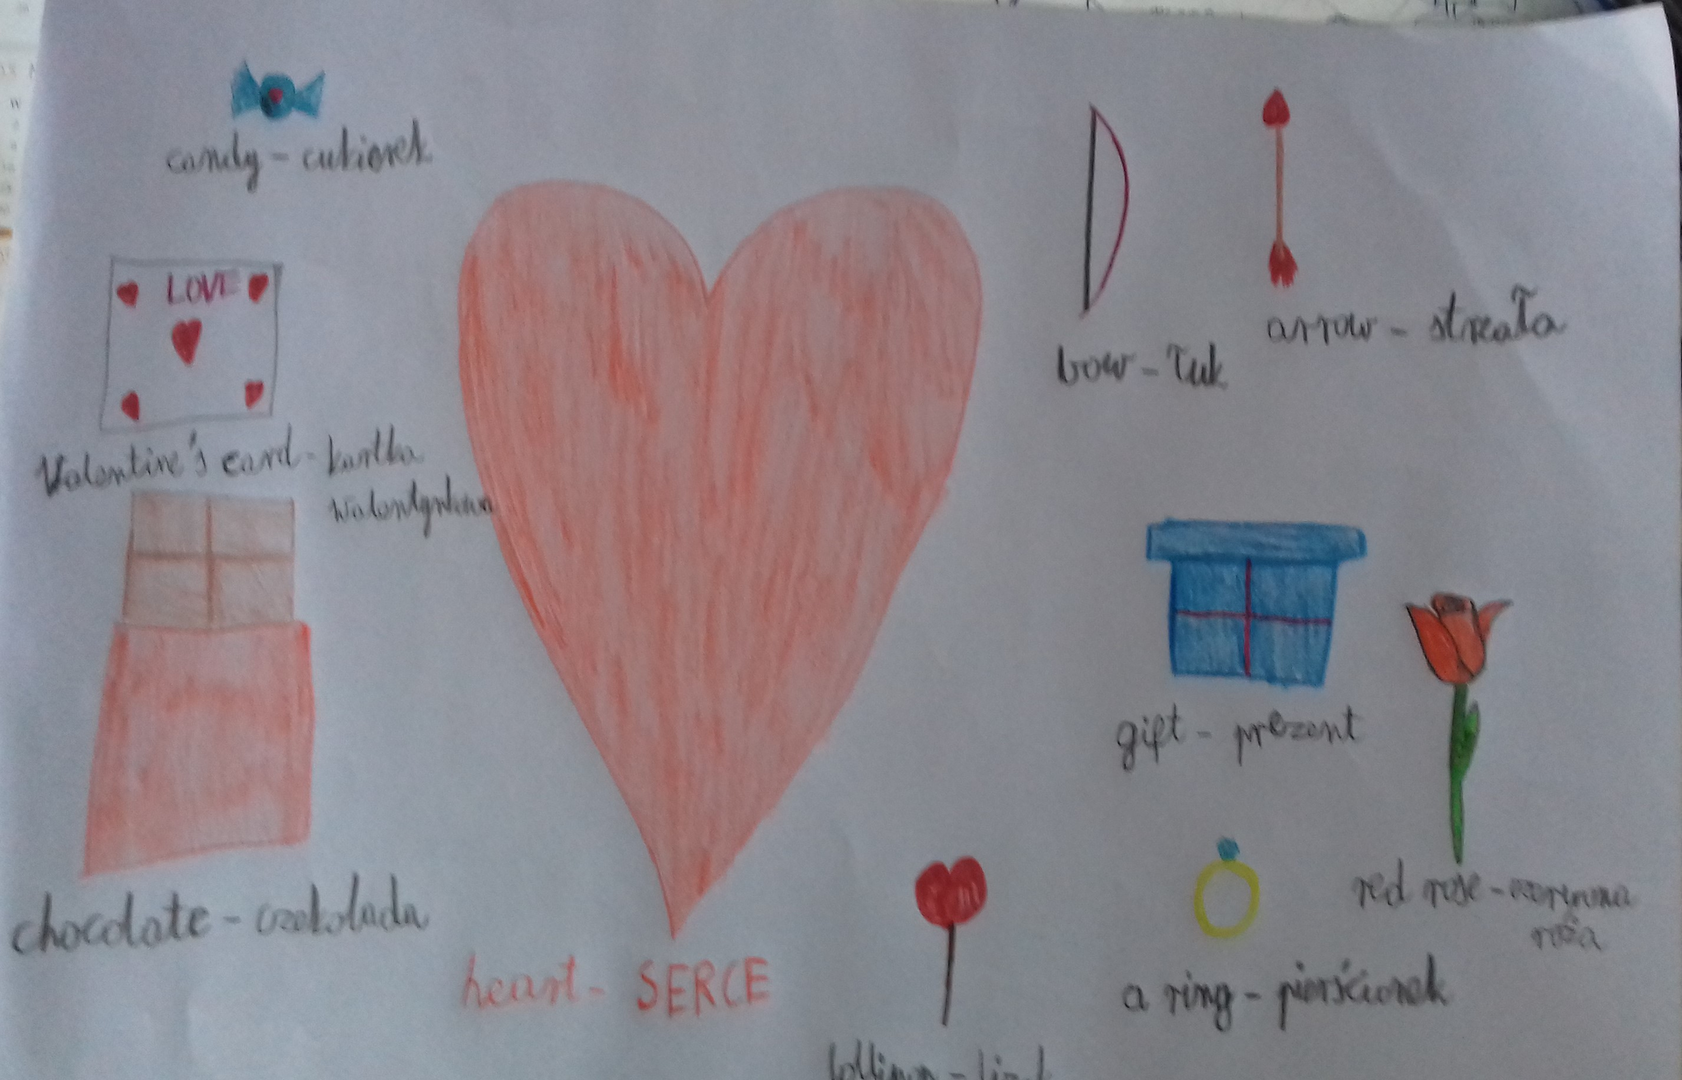 candy - cukierek
LOVE
Valentine's card - kartka
walentynkowa
chocolate - czekolada
heart - SERCE
bow - łuk
arrow - strzała
gift - prezent
red rose - czerwona
róża
a ring - pierścionek